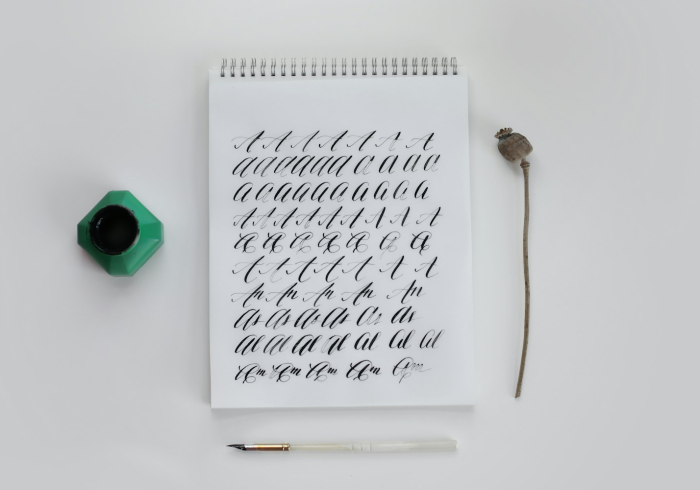 A A A A A A A
a a a a a a a a a a
a a a a a a a a a
A A A A A A A A A
A A A A A A A
A A A A A A A
An An An An An
As As As As As As
Al Al Al Al Al Al Al
Am Am Am Am Am